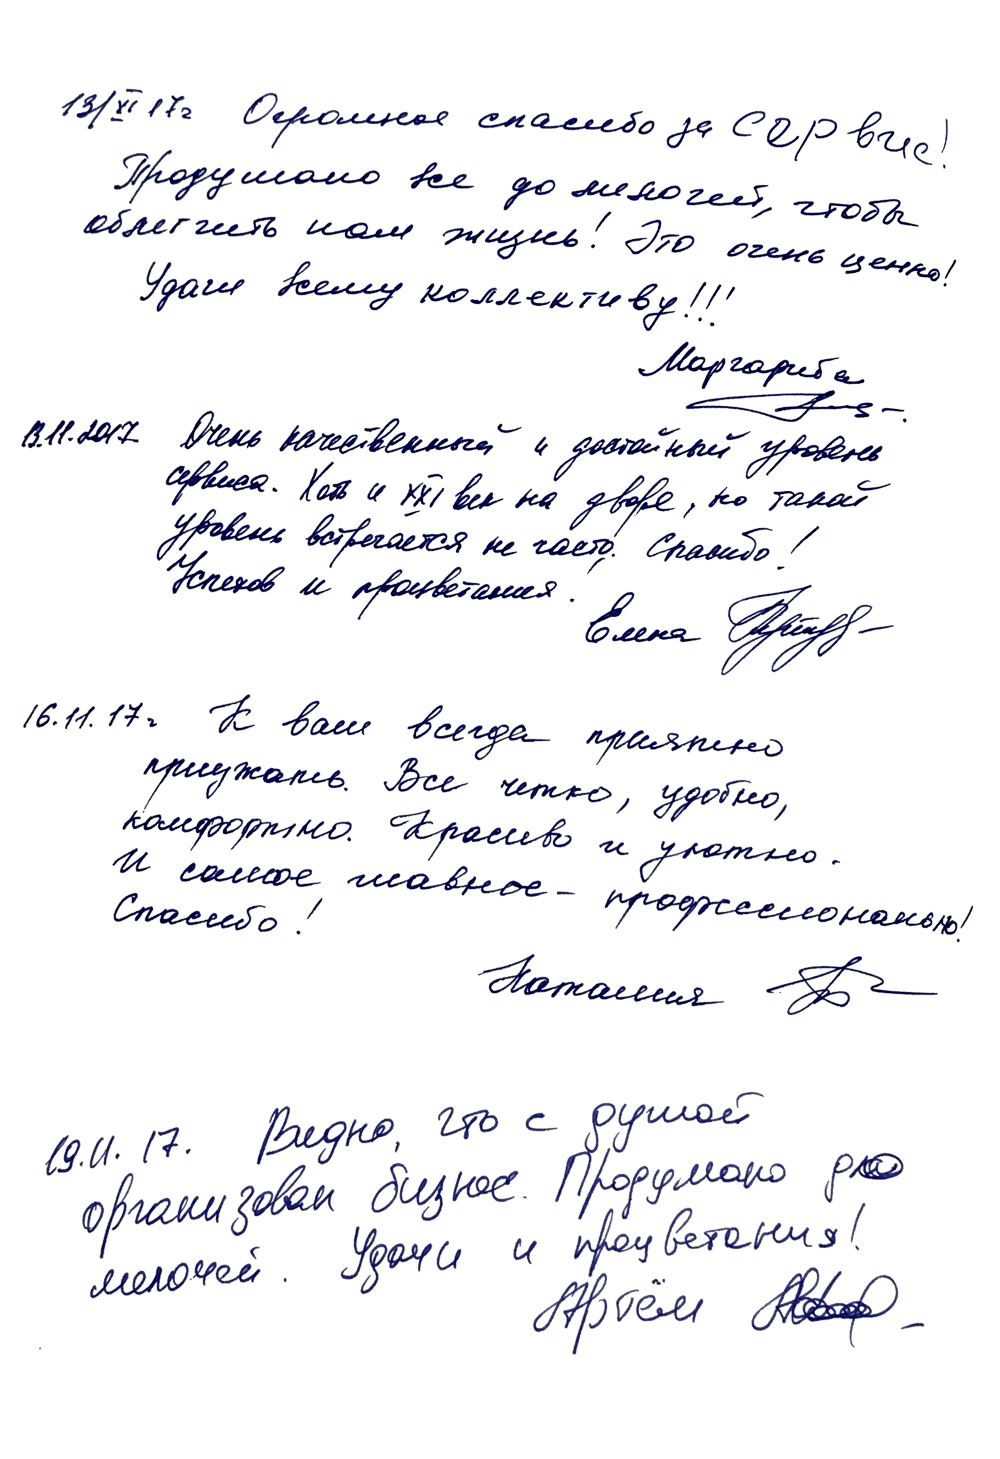 13/XI 17г Огромное спасибо за сервис!
Продумано все до мелочей, чтобы
облегчить нам жизнь! Это очень ценно!
Удачи всему коллективу!!!
Маргарита
13.11.2017 Очень качественный и достойный уровень
сервиса. Хоть и XXI век на дворе, но такой
уровень встречается не часто. Спасибо!
Успехов и процветания.
Елена
16.11.17г К вам всегда приятно
приезжать. Все четко, удобно,
комфортно. Красиво и уютно.
И самое главное – профессионально!
Спасибо!
Наталия
19.11.17. Видно, что с душой
организован бизнес. Продумано до
мелочей. Удачи и процветания!
Артём